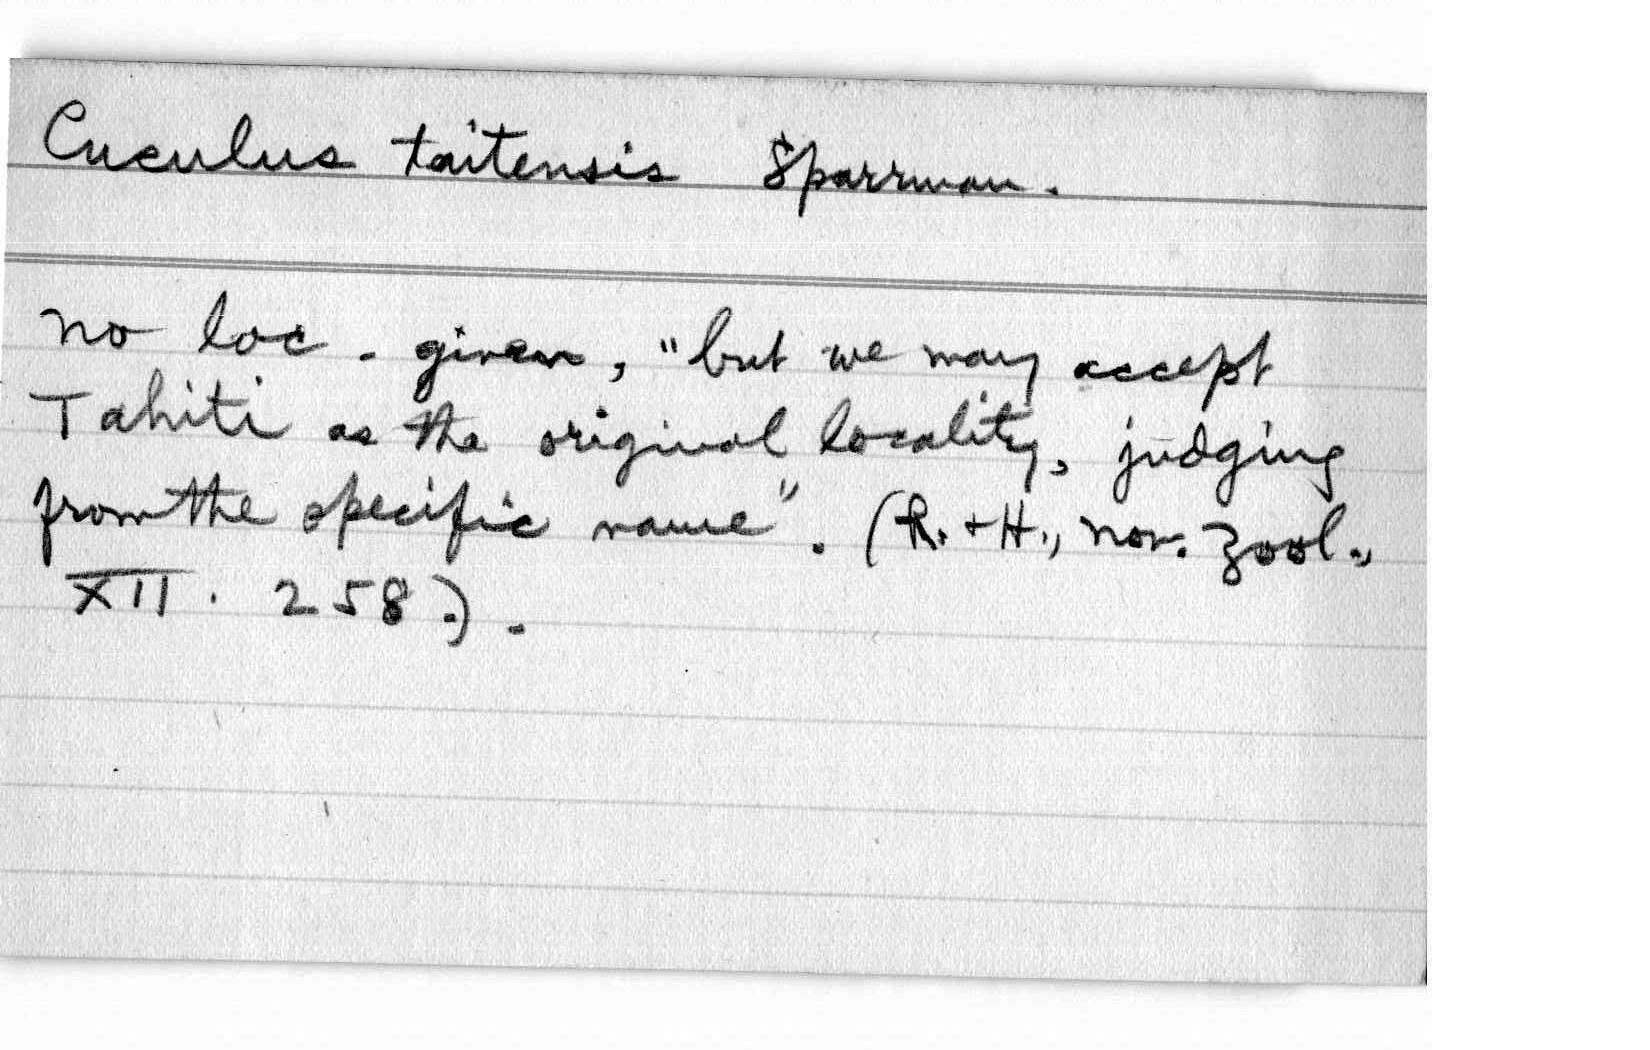 Cuculus taitensis Sparrman.
no loc. given, "but we may accept
Tahiti as the original locality, judging
from the specific name". (R. + H., nov. Zool.,
XII. 258.).